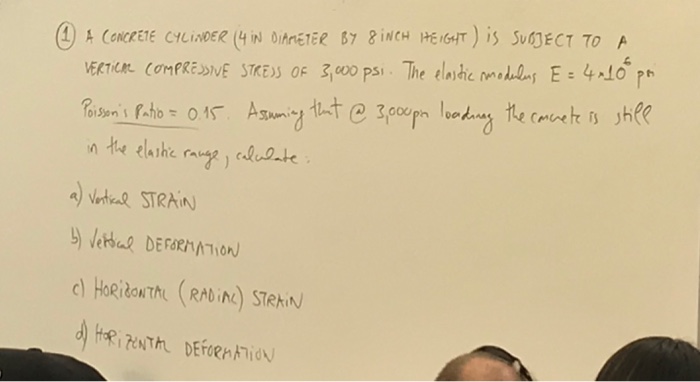 ① A CONCRETE CYLINDER (4 IN DIAMETER BY 8 INCH HEIGHT) IS SUBJECT TO A
VERTICAL COMPRESSIVE STRESS OF 3,000 psi. The elastic modulus E = 4×10⁶ psi
Poisson's Ratio = 0.15. Assuming that @ 3,000 psi loading the concrete is still
in the elastic range, calculate:
a) Vertical STRAIN
b) Vertical DEFORMATION
c) HORIZONTAL (RADIAL) STRAIN
d) HORIZENTAL DEFORMATION